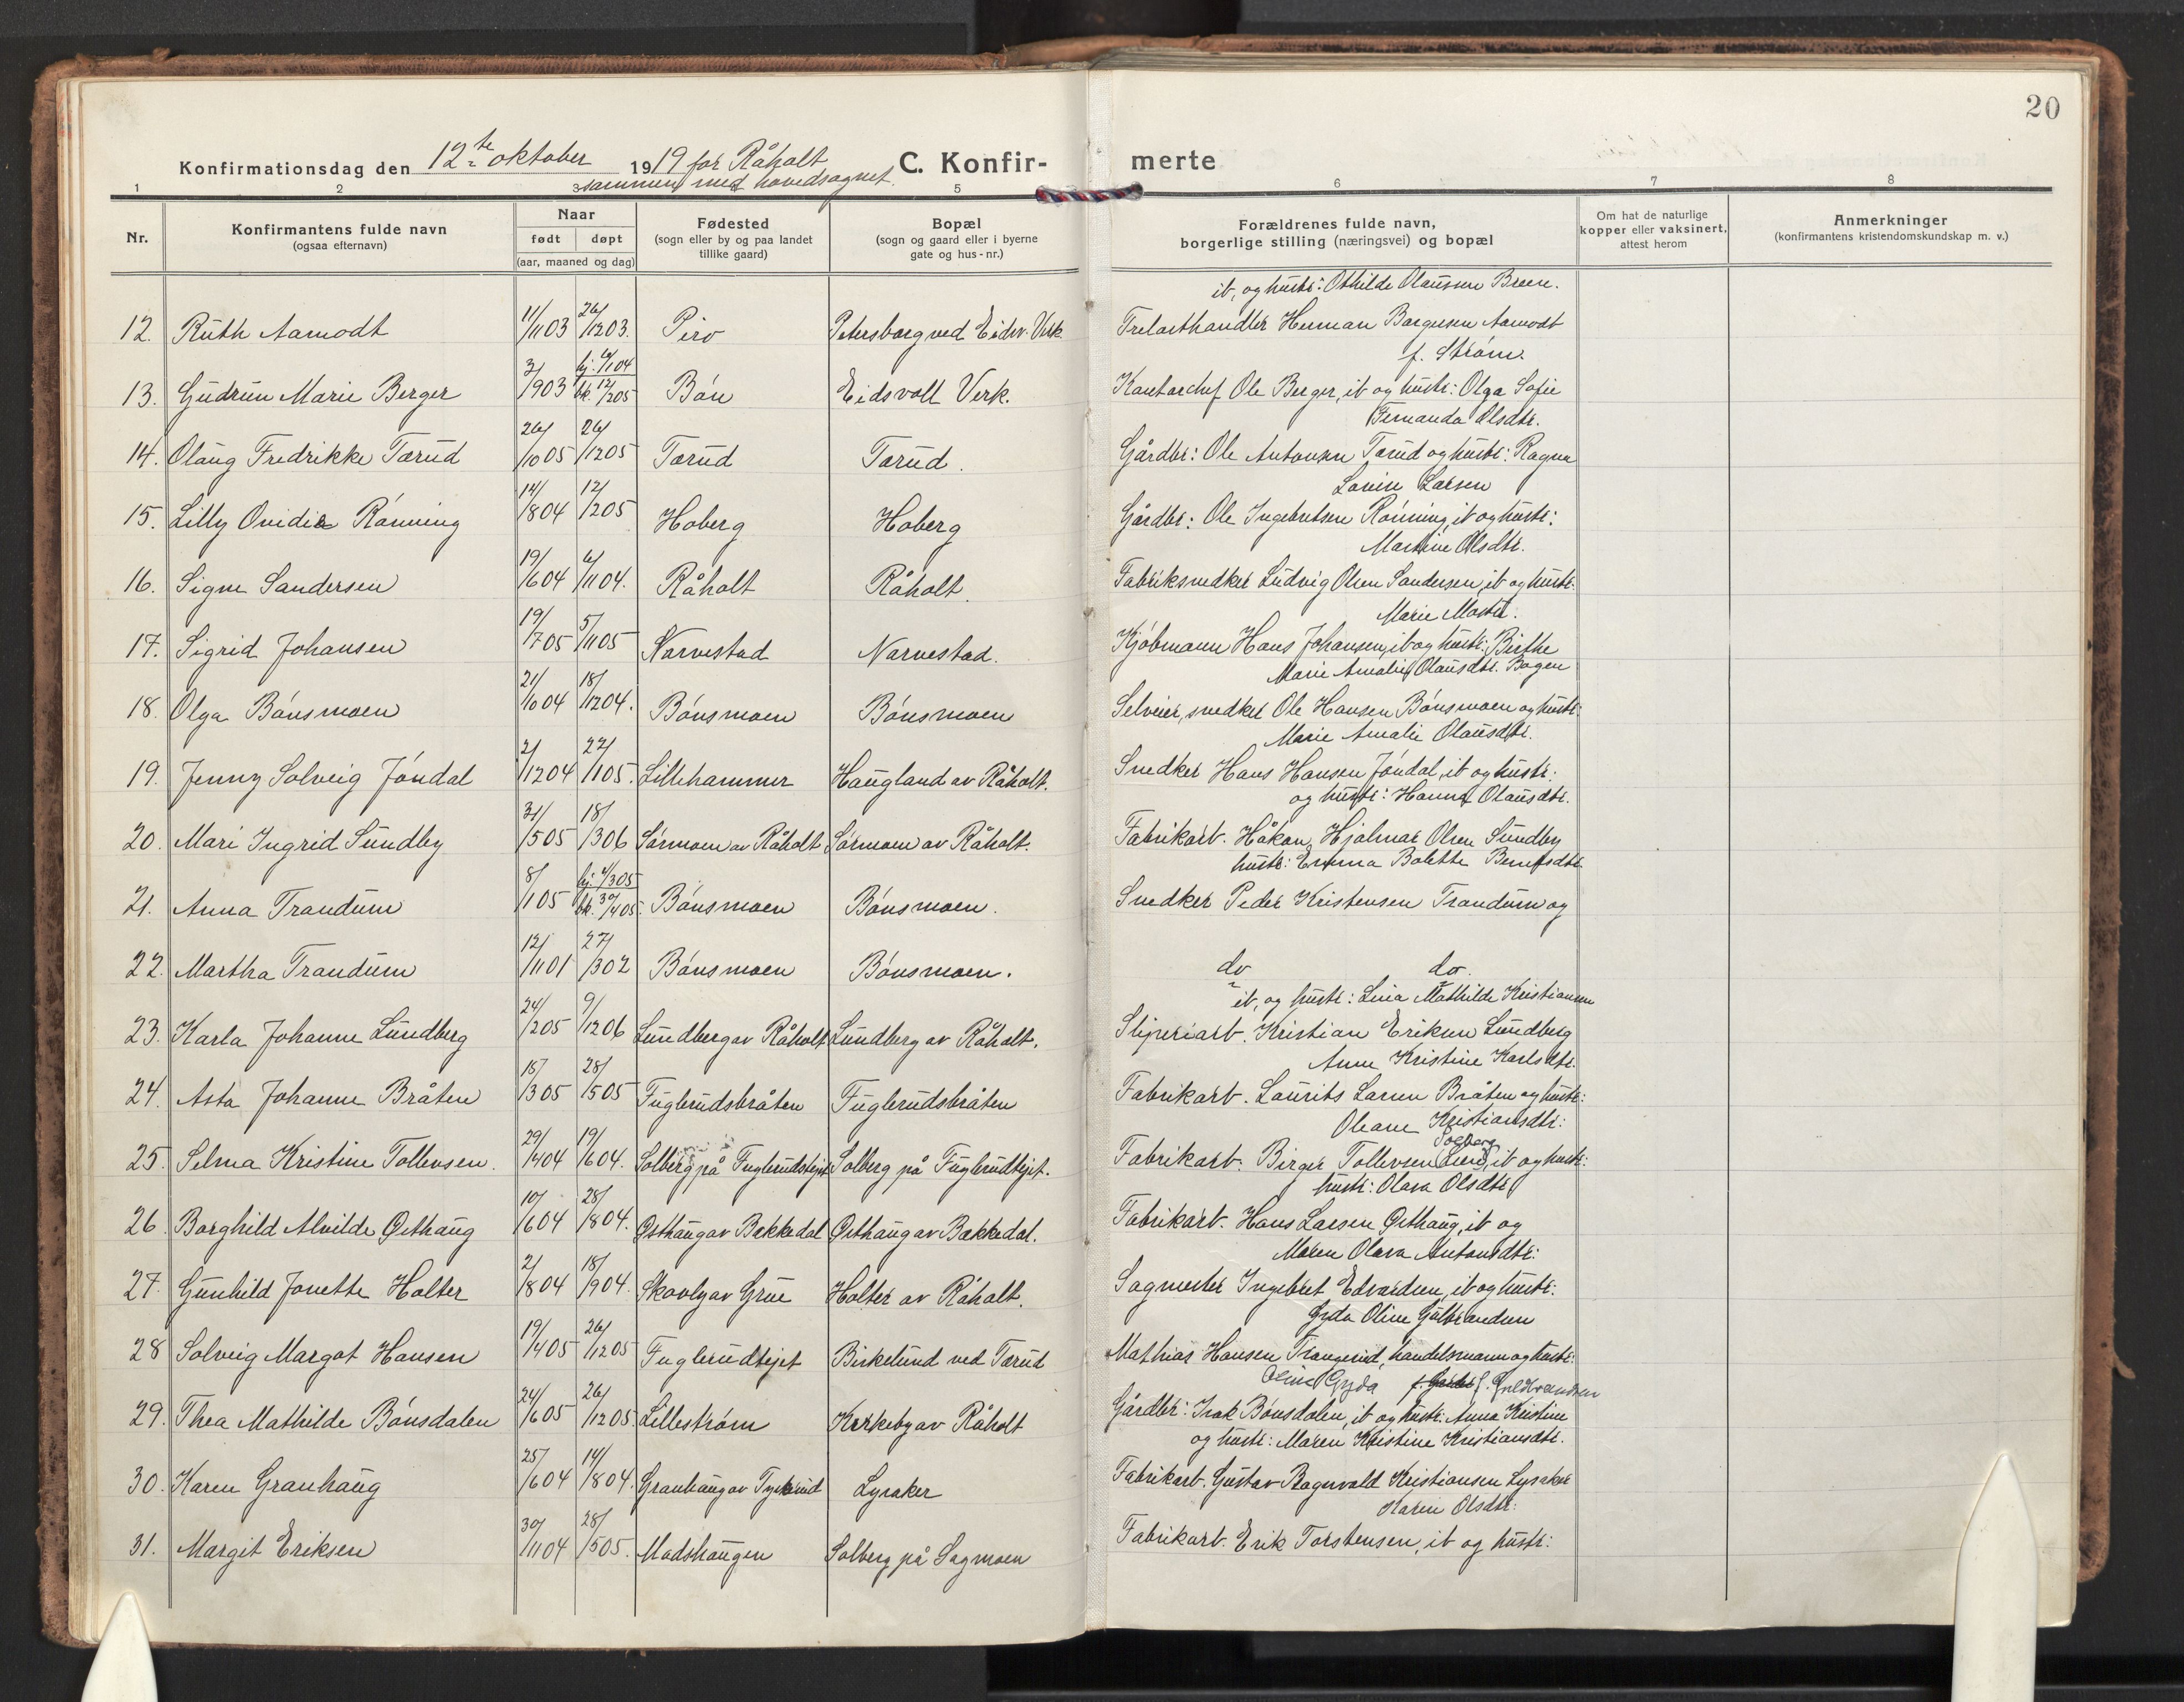 20
Konfirmationsdag den 12te oktober 1919 for Råholt
sammen med hovedsognet.
C. Konfir-
merte
1 2 3 5 6 7 8
Nr.
Konfirmantens fulde navn
(ogsaa efternavn)
Naar
født døpt
(aar, maaned og dag)
Fødested
(sogn eller by og paa landet
tillike gaard)
Bopæl
(sogn og gaard eller i byerne
gate og hus-nr.)
Forældrenes fulde navn,
borgerlige stilling (næringsvei) og bopæl
Om hat de naturlige
kopper eller vaksinert,
attest herom
Anmerkninger
(konfirmantens kristendomskundskap m. v.)
ib, og hustr: Othilde Olausen Breen.
12. Ruth Aamodt 11/11 03 26/12 03. Piro Petersborg ved Eidsv. Verk. Trelasthandler Herman Borgersen Aamodt
f. Strøm.
13. Gudrun Marie Berger 3/9 03 hj. 6/1 04 bk. 12/2 05 Bøn Eidsvoll Verk. Kontorchef Ole Berger, ib og hustr: Olga Sofie
Fernanda Olsdtr.
14. Olaug Fredrikke Tærud 26/10 05 26/12 05 Tærud Tærud. Gårdbr: Ole Antonsen Tærud og hustr: Ragna
Lovise Larsen
15. Lilly Ovidia Rønning 14/8 04 12/2 05 Hoberg Hoberg Gårdbr: Ole Ingebretsen Rønning, ib og hustr:
Martine Olsdtr.
16. Signe Sandersen 19/6 04 6/11 04. Råholt Råholt. Fabriksnedker Ludvig Olsen Sandersen, ib og hustr:
Marie
17. Sigrid Johansen 19/7 05 5/11 05 Narvestad Narvestad. Kjøbmann Hans Johansen, ib og hustr: Birthe
Marie Amalie Olausdtr. Bogen
18. Olga Bønsmoen 21/10 04 18/12 04. Bønsmoen Bønsmoen Selveier, snedker Ole Hansen Bønsmoen og hustr:
Marie Amalie Olausdtr.
19. Jenny Solveig Jøndal 2/12 04 22/1 05. Lillehammer Haugland av Råholt. Snedker Hans Hansen Jøndal, ib og hustr:
og hustr: Hanna Olausdtr.
20. Mari Ingrid Sundby 31/5 05 18/3 06 Sørmoen av Råholt Sørmoen av Råholt. Fabrikarb. Håkon Hjalmar Olsen Sundby
hustr: Emma Bolette Berntsdtr
21. Anna Trandum 8/1 05 hj. 4/3 05 bk. 30/4 05. Bønsmoen Bønsmoen. Snedker Peder Kristensen Trandum og
22. Martha Trandum 12/11 01 27/3 02 Bønsmoen Bønsmoen. do do.
ib, og hustr: Lina Mathilde Kristiansen
23. Karla Johanne Lundberg 24/2 05 9/12 06 Lundberg av Råholt Lundberg av Råholt. Sliperiarb. Kristian Eriksen Lundberg
Anne Kristine Karlsdtr.
24. Asta Johanne Bråten 15/3 05 28/5 05 Fuglerudsbråten Fuglerudsbråten Fabrikarb. Laurits Larsen Bråten og hustr:
Oleane Kristiansdtr:
Solberg
25. Selma Kristine Tollevsen. 29/4 04 19/6 04. Solberg på Fuglerudsejet Solberg på Fuglerudejet. Fabrikarb: Birger Tollevsen Lund, ib og hustr:
hustr: Olava Olsdtr
26. Borghild Alvilde Østhaug 10/6 04 28/8 04. Østhaug av Bækkedal Østhaug av Bækkedal. Fabrikarb. Hans Larsen Østhaug, ib og
Maren Olava Antonsdtr:
27. Gunhild Jonette Holter 2/8 04 18/9 04. Skovly av Grue Holter av Råholt. Sagmester Ingebret Edvardsen, ib og hustr:
Gyda Oline Gulbrandsen
28 Solveig Margot Hansen 19/4 05 26/12 05 Fuglerudejet Birkelund ved Tærud Mathias Hansen Trangerud, handelsmann og hustr:
Oline Gyda f. Guldbrandsen
29. Thea Mathilde Bønsdalen 24/6 05 26/12 05. Lillestrøm Kirkeby av Råholt Gårdbr: Isak Bønsdalen, ib og hustr: Anna Kristine
og hustr: Maren Kristine Kristiansdtr.
30. Karen Granhaug 25/6 04 14/8 04. Granhaug av Tyskerud Lysaker Fabrikarb. Gustav Ragnvald Kristiansen Lysaker
Karen Olsdtr:
31. Margit Eriksen 30/11 04 28/5 05. Madshaugen Solberg på Sagmoen Fabrikarb. Erik Torstensen, ib og hustr: